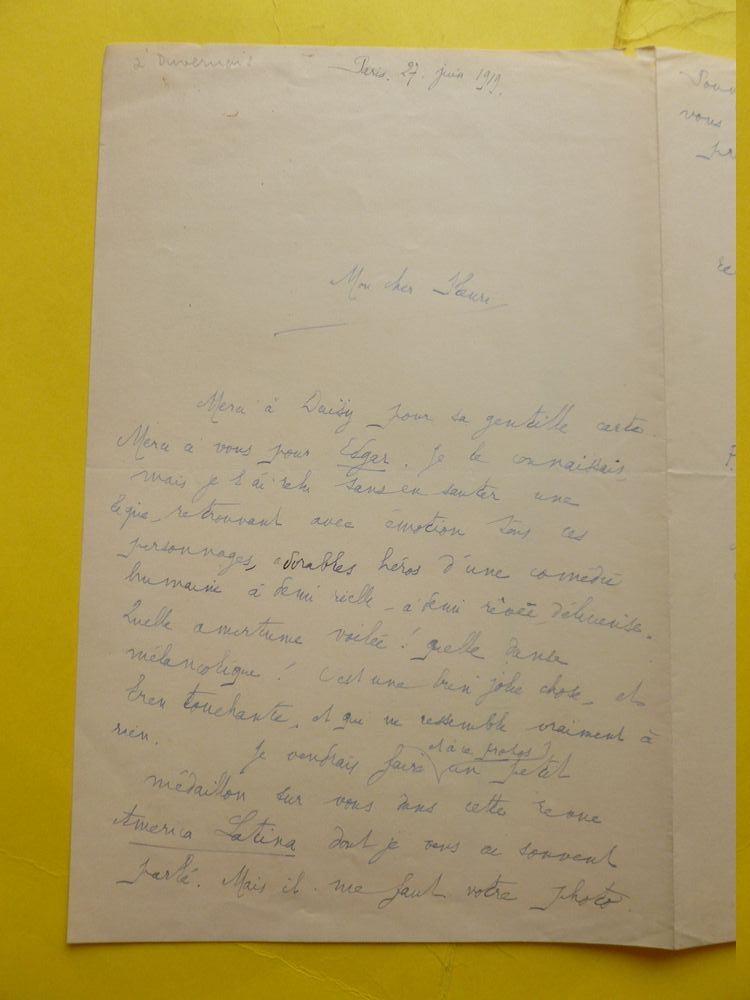 à Duvernois
Paris. 27. juin 1919.
Mon cher Henri
Merci à Daisy pour sa gentille carte.
Merci à vous pour Edgar. Je le connaissais,
mais je l'ai relu sans en sauter une
ligne, retrouvant avec émotion tous ces
personnages, adorables héros d'une comédie
humaine à demi réelle, à demi rêvée délicieuse.
Quelle amertume voilée ! quelle danse
mélancolique ! C'est une bien jolie chose, et
bien touchante, et qui ne ressemble vraiment à
rien. Je voudrais faire (et à ce propos) un petit
médaillon sur vous dans cette revue
America Latina dont je vous ai souvent
parlé. Mais il me faut votre photo.
vous